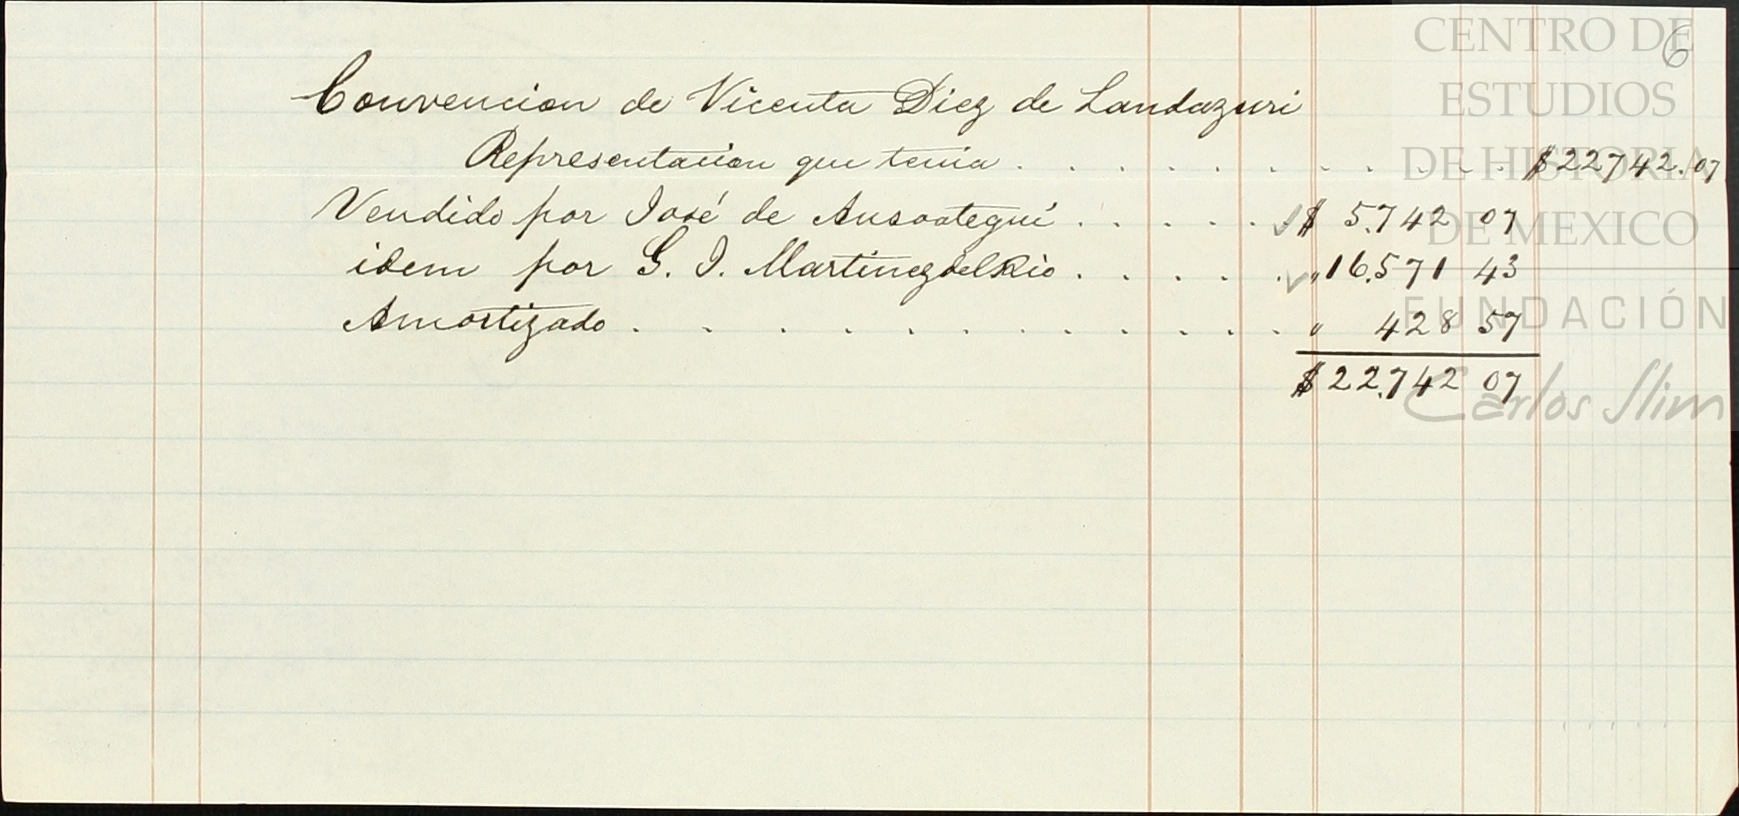 6
Convencion de Vicenta Diez de Landazuri
Representacion que tenia . . . . . . . . . . . . $22742.07
Vendido por José de Ansoategui . . . . . $ 5.742 07
idem por G. I. Martinez del Rio . . . . . " 16.571 43
Amortizado . . . . . . . . . . . . . " 428 57
$22.742 07
CENTRO DE
ESTUDIOS
DE HISTORIA
DE MEXICO
FUNDACIÓN
Carlos Slim